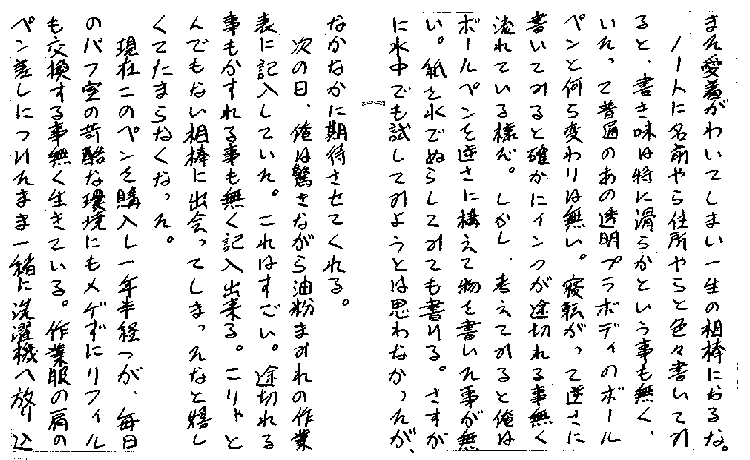 また愛着がわいてしまい一生の相棒になるな。
ノートに名前やら住所やらと色々書いてみ
ると、書き味は特に滑らかという事も無く、
いたって普通のあの透明プラボディのボール
ペンと何ら変わりは無い。寝転がって逆さに
書いてみると確かにインクが途切れる事無く
流れている様だ。しかし、考えてみると俺は
ボールペンを逆さに構えて物を書いた事が無
い。紙を水でぬらしてみても書ける。さすが
に水中でも試してみようとは思わなかったが、
なかなかに期待させてくれる。
次の日、俺は驚きながら油粉まみれの作業
表に記入していた。これはすごい。途切れる
事もかすれる事も無く記入出来る。こりゃと
んでもない相棒に出会ってしまったなと嬉し
くてたまらなくなった。
現在このペンを購入し一年半経つが、毎日
のバフ室の苛酷な環境にもメゲずにリフィル
も交換する事無く生きている。作業服の肩の
ペン差しにつけたまま一緒に洗濯機へ放り込